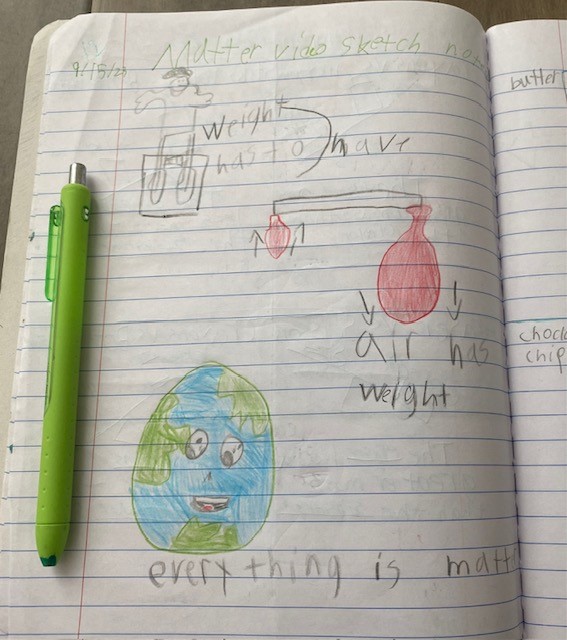 9/15/23 Matter video sketch not
Weight
has to have
air has
weight
every thing is matt
butter
choco
chip